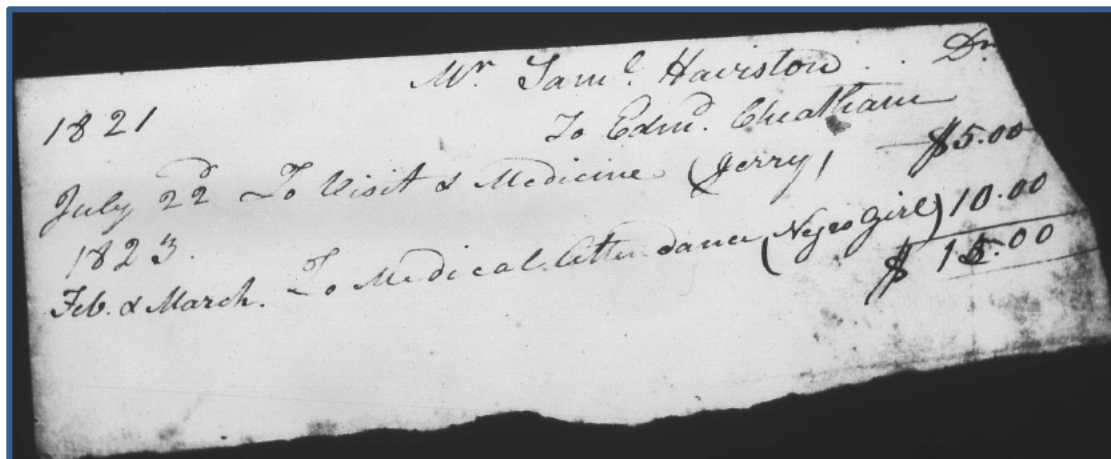 Mr Saml. Hairston . . Dr
1821 To Edmd. Cheatham
July 22d To Visit & Medicine (Jerry) $5.00
1823.
Feb. & March. To Medical attendance (Negro Girl) 10.00
$15.00